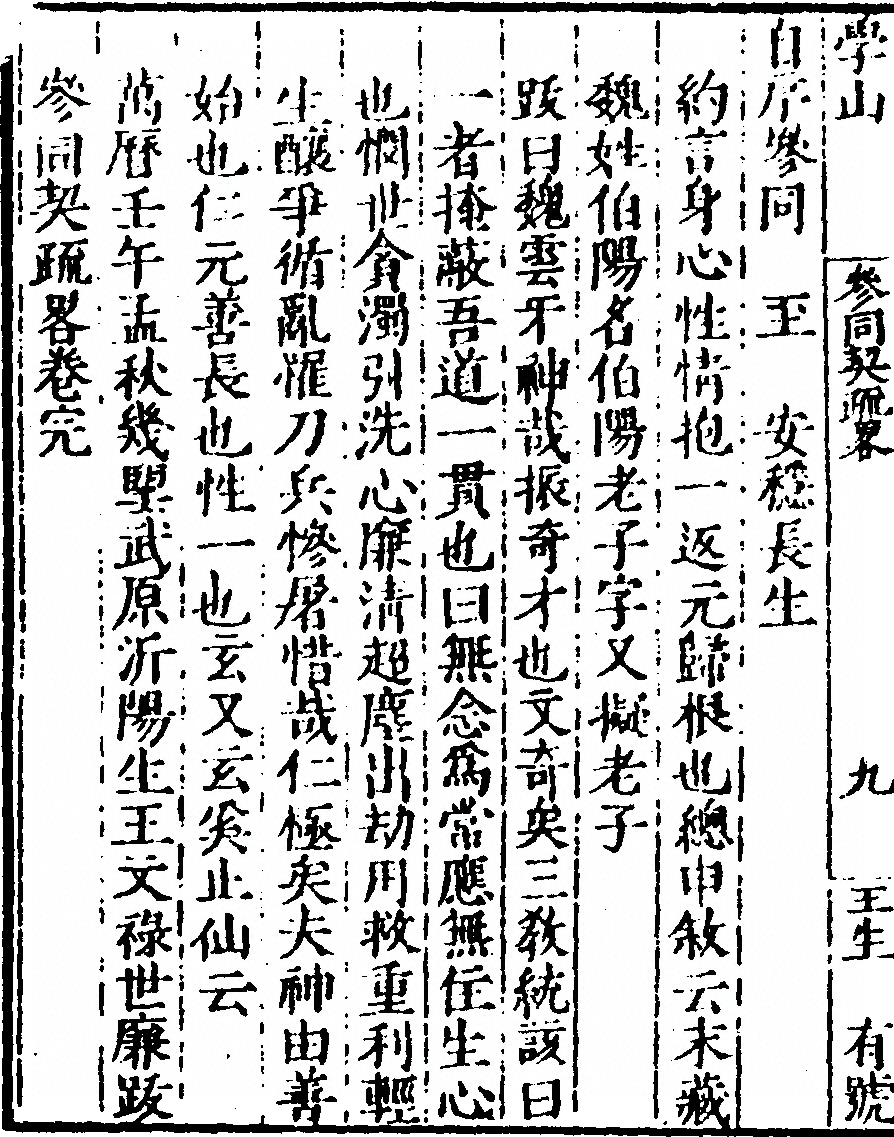 學山 參同契疏畧 九 王生 有號
自序參同 至 安穩長生
約言身心性情抱一返元歸根也總申敘云末藏
魏姓伯陽名伯陽老子字又擬老子
跋曰魏雲牙神哉振奇才也文奇矣三教統該曰
一者掩蔽吾道一貫也曰無念爲常應無住生心
也憫世貪濁引洗心廉清超塵出劫用救重利輕
生釀爭循亂惟刀兵慘屠惜哉仁極矣夫神由善
始也仁元善長也性一也玄又玄奚止仙云
萬曆壬午孟秋幾朢武原沂陽生王文祿世廉跋
參同契疏畧卷完